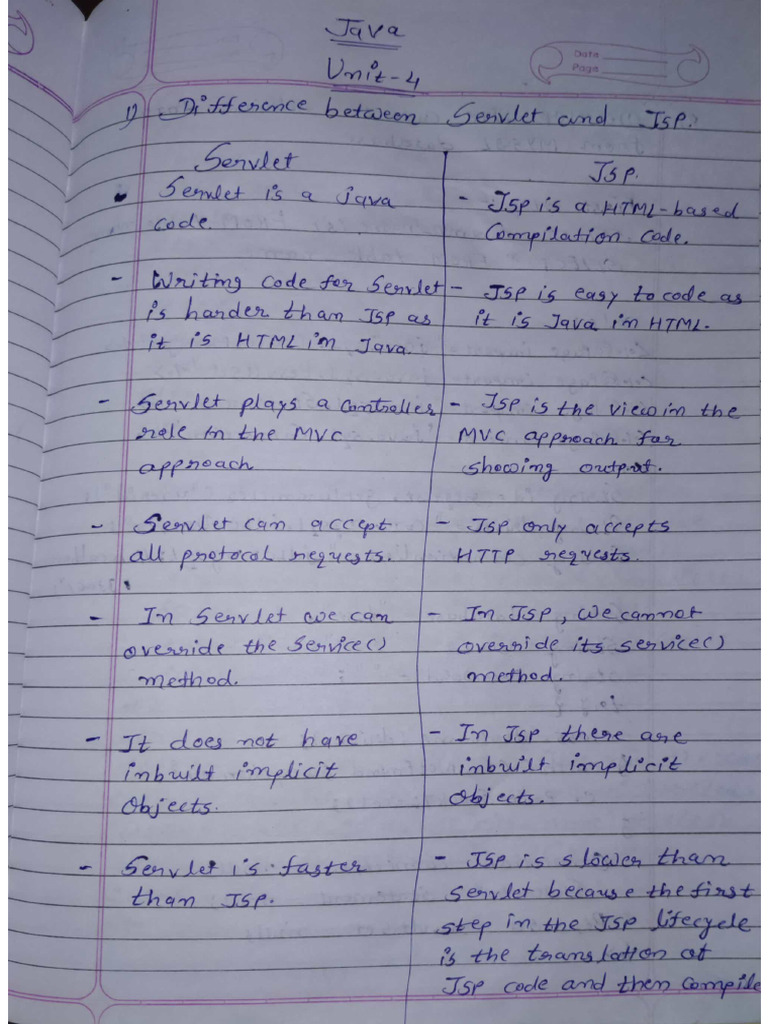 Java
Date
Page
Unit-4
1) Difference between Servlet and JSP.
Servlet
Servlet is a java
code.
- Writing code for Servlet
is harder than JSP as
it is HTML in Java.
- Servlet plays a Controller
role in the MVC
approach
- Servlet can accept
all protocol requests.
- In Servlet we can
override the Service()
method.
- It does not have
inbuilt implicit
Objects.
- Servlet is faster
than JSP.
JSP.
- JSP is a HTML-based
Compilation Code.
- JSP is easy to code as
it is Java in HTML.
- JSP is the view in the
MVC approach for
showing output.
- JSP only accepts
HTTP requests.
- In JSP, We cannot
override its service()
method.
- In JSP there are
inbuilt implicit
Objects.
- JSP is slower than
Servlet because the first
step in the JSP lifecycle
is the translation of
JSP code and then Compile